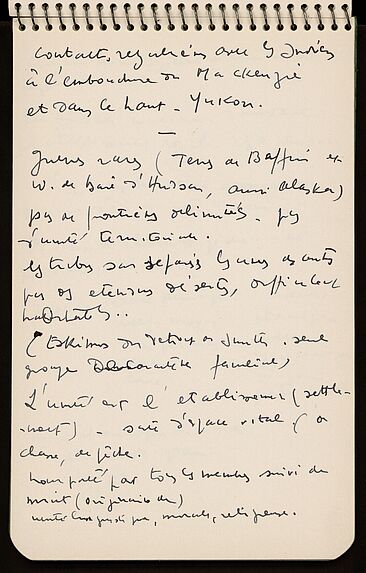 contacts réguliers avec les Indiens
à l'embouchure du Mackenzie
et dans le haut - Yukon.
—
guerres rares (Terre de Baffin et
W. de baie d'Hudson, aussi Alaska)
pas de frontières délimitées - pas
d'unité territoriale.
les tribus sont séparées les unes des autres
par des étendues désertes, difficilement
habitables..
(Eskimos du détroit de Smith. seul
groupe familiale)
L'unité est l'établissement (settle-
-ment) - sorte d'espace vital (de
chasse, de pêche.
nom porté par tous les membres suivi de
miut (originaire de)
unité linguistique, morale, religieuse.